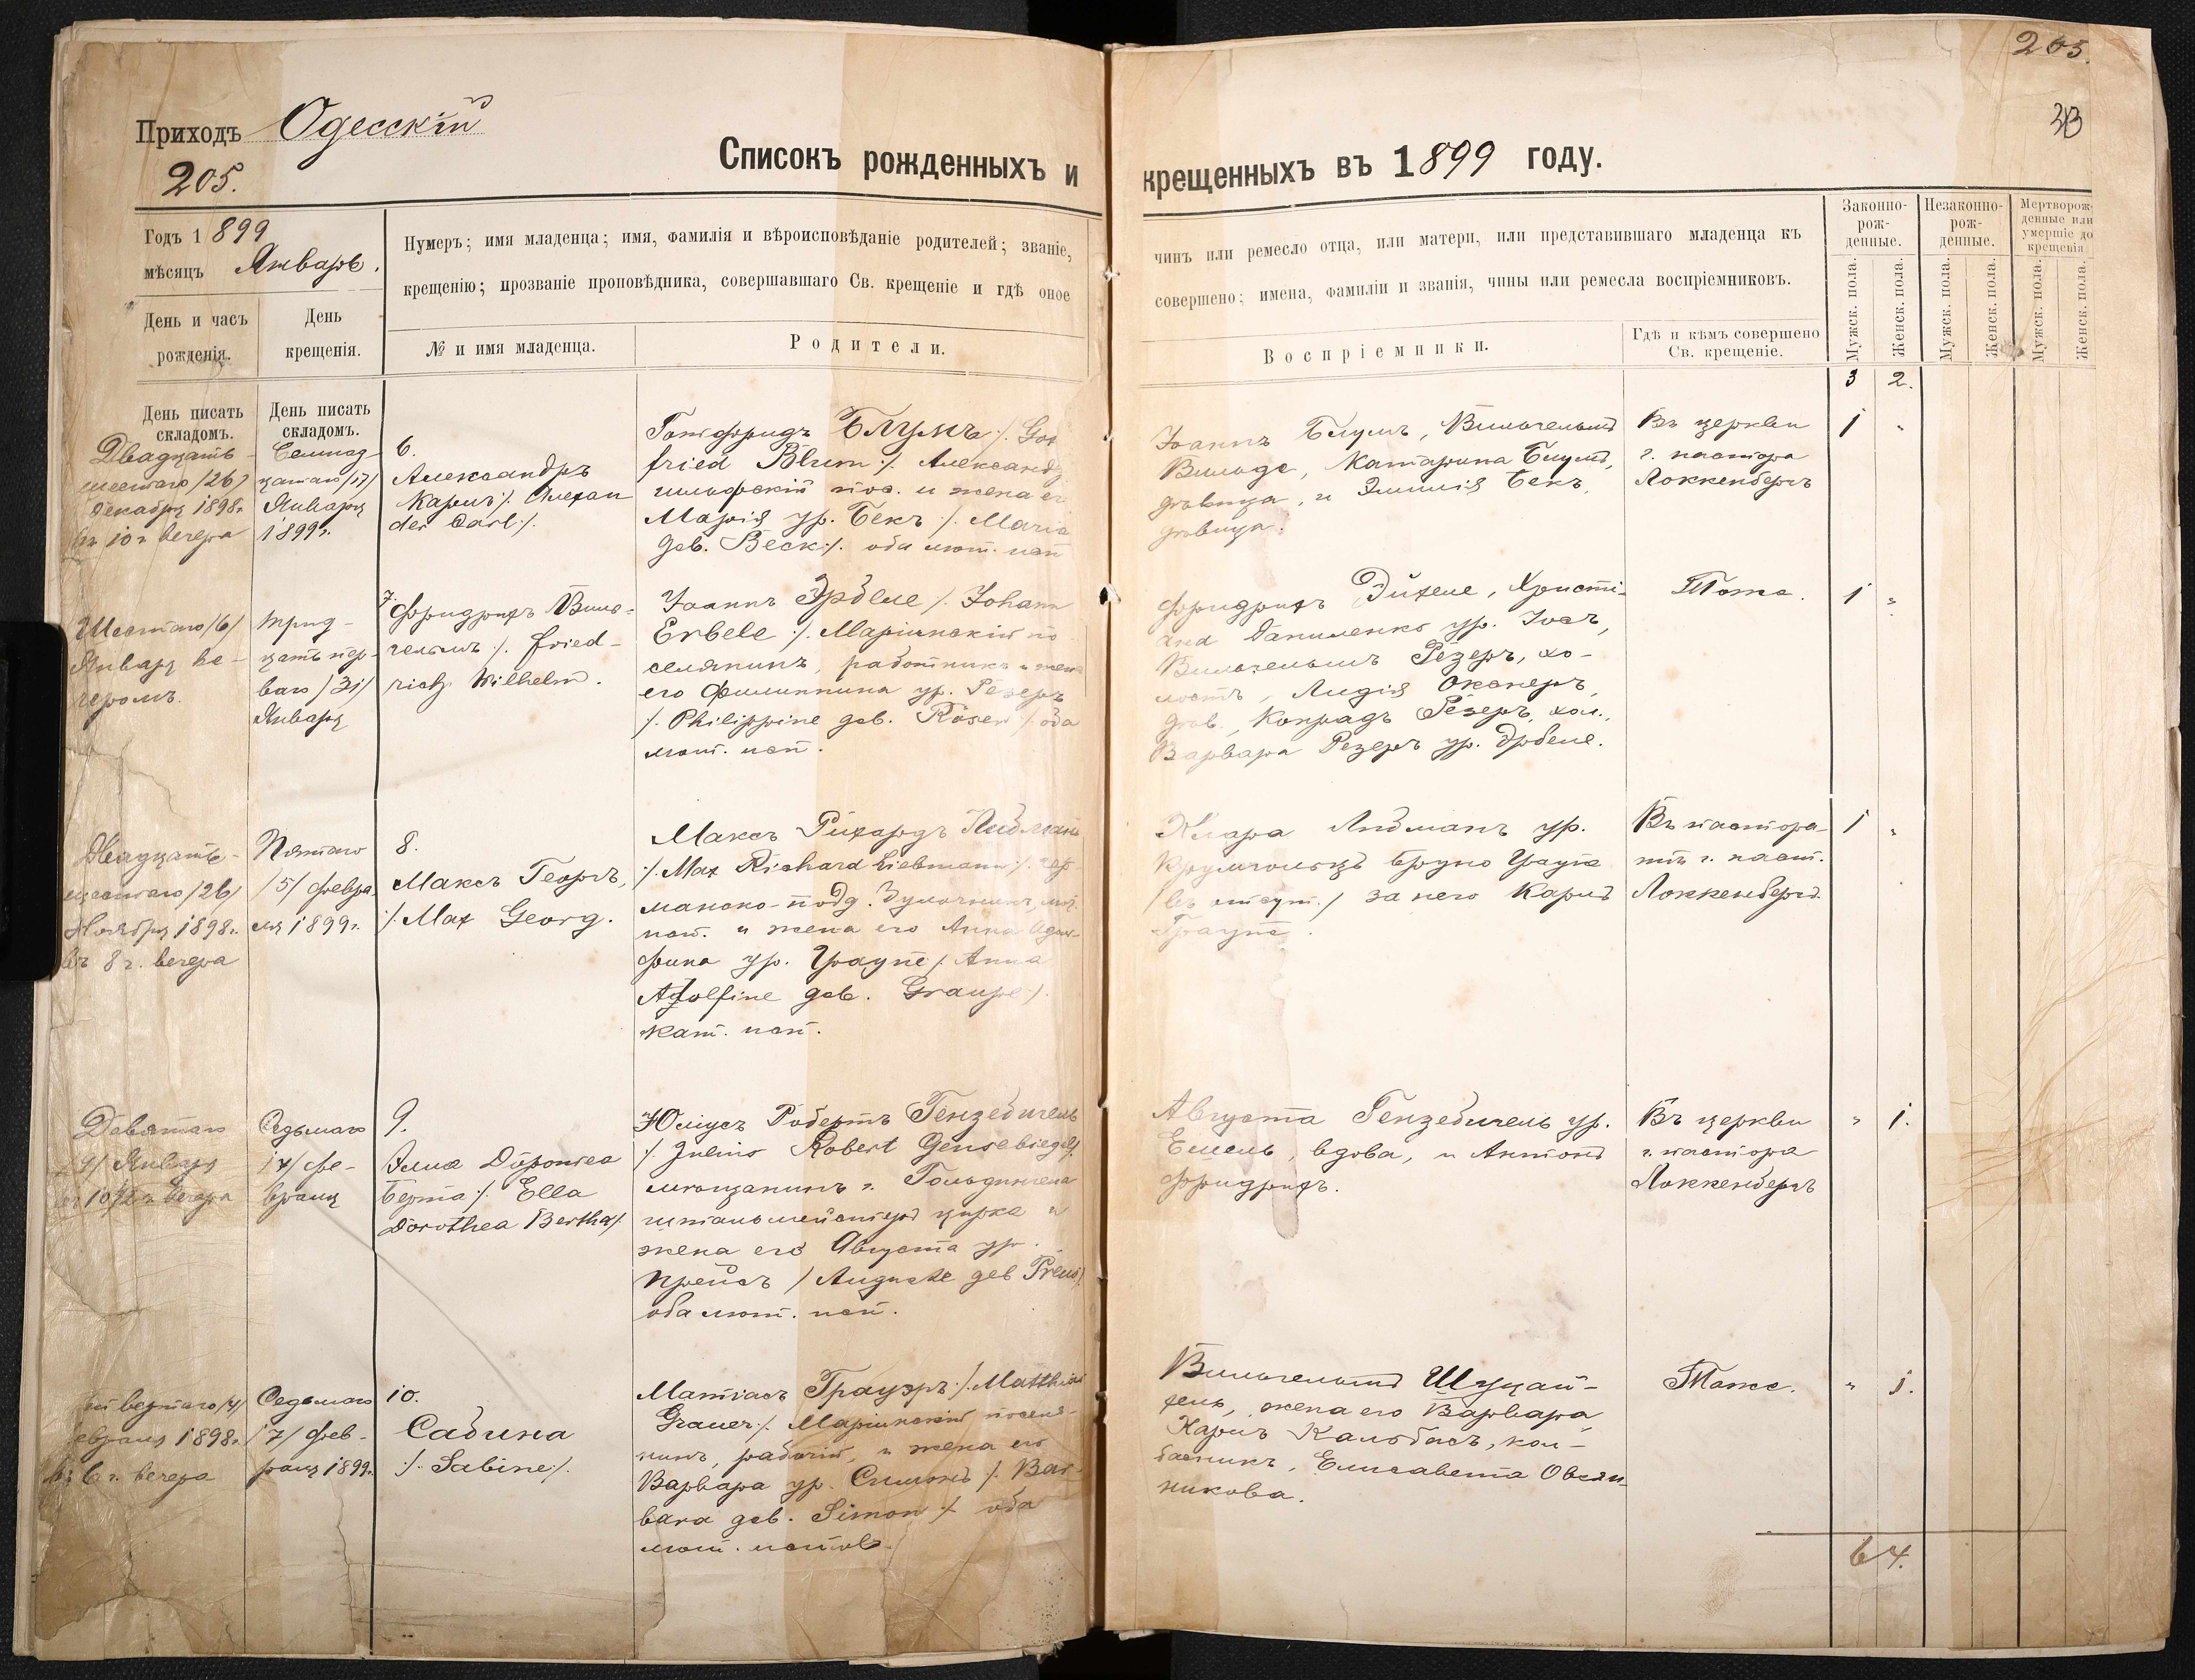 205.
33
Приходъ Одесскій
205.
Списокъ рожденныхъ и крещенныхъ въ 1899 году.
Годъ 1899
мѣсяцъ Январь.
День и часъ рожденія.
День крещенія.
Нумеръ; имя младенца; имя, фамилія и вѣроисповѣданіе родителей; званіе,
чинъ или ремесло отца, или матери, или представившаго младенца къ
крещенію; прозваніе проповѣдника, совершавшаго Св. крещеніе и гдѣ оное
совершено; имена, фамиліи и званія, чины или ремесла воспріемниковъ.
№ и имя младенца.
Родители.
Воспріемники.
Гдѣ и кѣмъ совершено
Св. крещеніе.
Законно-
рож-
денные.
Незаконно-
рож-
денные.
Мертворож-
денные или
умершіе до
крещенія.
Мужск. пола.
Женск. пола.
Мужск. пола.
Женск. пола.
Мужск. пола.
Женск. пола.
3 2.
День писать
складомъ.
День писать
складомъ.
Двадцать-
шестаго /26/
Декабря 1898г.
въ 10 ч. вечера
Семнад-
цатаго /17/
Января
1899г.
6.
Александръ
Карлъ /. Alexan
der Carl /.
Готфридъ Блумъ /. Got
fried Blum /. Александ
гильфскій пос. и жена его
Марія ур. Бекъ /. Maria
geb. Beck /. оба лют. исп
Іоаннъ Блумъ, Вильгельмъ
Вильде, Катарина Блумъ,
дѣвица, и Эмилія Бекъ,
дѣвица.
Въ церкви
г. пастора
Локкенбергъ
1 "
Шестаго /6/
Января ве-
черомъ.
Трид-
цать пер-
ваго /31/
Января
7.
Фридрихъ Виль-
гельмъ /. Fried-
rich Wilhelm.
Іоаннъ Эрбеле /. Johann
Erbele /. Маріинскій по
селянинъ, работникъ и жена
его Филиппина ур. Резеръ
/. Philippine geb. Röser /. оба
лют. исп.
Фридрихъ Дителе, Христі-
ана Даниленко ур. Іосъ,
Вильгельмъ Резеръ, хо-
лостъ, Лидія Окснеръ,
дѣв., Конрадъ Резеръ, хол.,
Варвара Резеръ ур. Эрбеле.
Тоже.
1 "
Двадцать-
шестаго /26/
Ноября 1898г.
въ 8 ч. вечера
Пятаго
/5/ Февра
ля 1899г.
8.
Максъ Георгъ,
/. Max Georg.
Максъ Рихардъ Либманъ
/. Max Richard Liebmann /. гер
манско-подд. Булочникъ, лют.
исп. и жена его Анна Адоль-
фина ур. Граупе /. Anna
Adolfine geb. Graupe /.
кат. исп.
Клара Либманъ ур.
Крумгольцъ Бруно Граупе
/въ отсут./ за него Карлъ
Граупе.
Въ пастора-
тѣ г. паст.
Локкенбергъ.
1 "
Девятаго
/9/ Января
въ 10½ ч. вечера
Седьмаго
/7/ Фе-
враля
9.
Элла Доротеа
Берта /. Ella
Dorothea Bertha /.
Юліусъ Робертъ Гензебигель
/. Julius Robert Gensebiegel /.
мѣщанинъ г. Гольдингена
шталмейстеръ цирка и
жена его Августа ур.
Прейсъ /. Auguste geb Preus /.
оба лют. исп.
Августа Гензебигель ур.
Емель, вдова, и Антонъ
Фридрихъ.
Въ церкви
г. пастора
Локкенбергъ
" 1.
четвертаго /4/
Февраля 1898г.
въ 6 ч. вечера
Седьмаго
/7/ Фев-
раля 1899г.
10.
Сабина
/. Sabine /.
Матіасъ Грауэръ /. Matthias
Grauer /. Маріинскій поселя-
нинъ, рабочій, и жена его
Варвара ур. Симонъ /. Bar-
bara geb. Simon /. оба
лют. исповѣ.
Вильгельмъ Шуцай-
хель, жена его Варвара,
Карлъ Кальбасъ, кол-
басникъ, Елисавета Овсян-
никова.
Тоже.
" 1.
6 4.